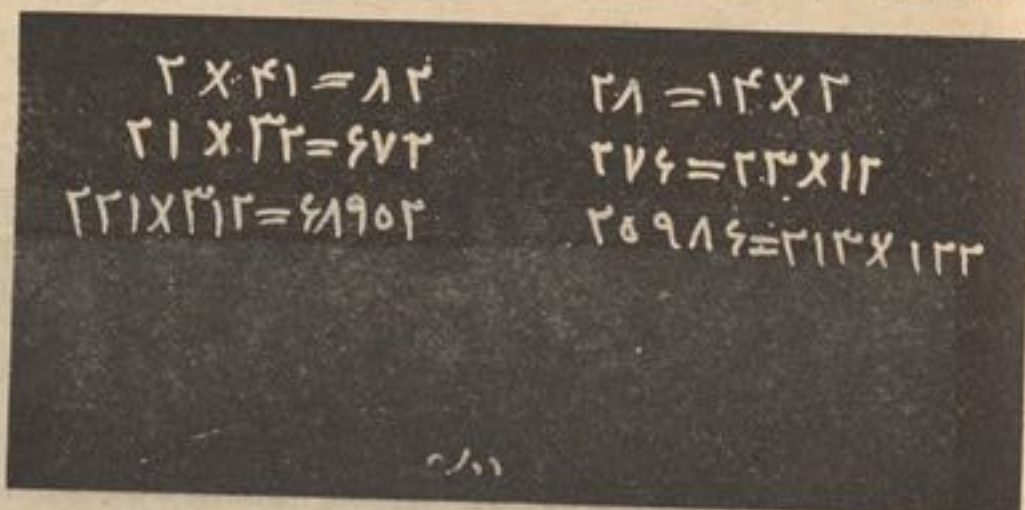 ۲ × ۴۱ = ۸۲
۲۱ × ۳۲ = ۶۷۲
۲۲۱ × ۳۱۲ = ۶۸۹۵۲
۲۸ = ۱۴ × ۲
۲۷۶ = ۲۳ × ۱۲
۲۵۹۸۶ = ۲۱۳ × ۱۲۲